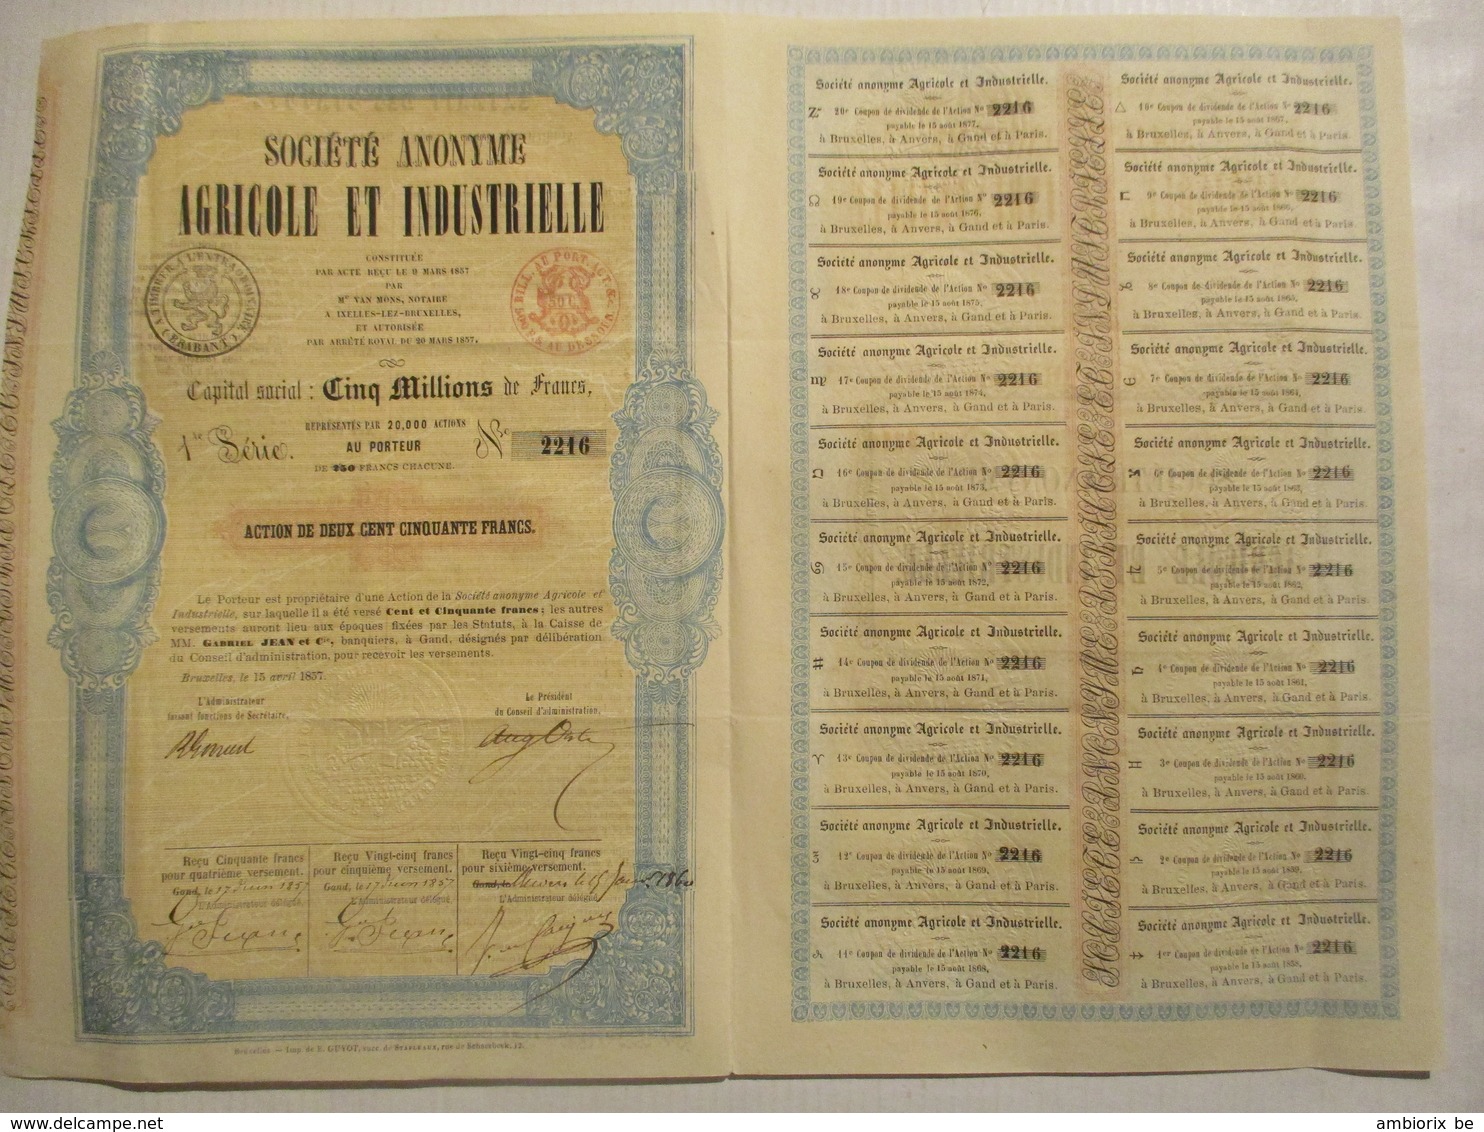 SOCIÉTÉ ANONYME
AGRICOLE ET INDUSTRIELLE
CONSTITUÉE
PAR ACTE REÇU LE 9 MARS 1857
PAR
Me VAN MONS, NOTAIRE
A IXELLES-LEZ-BRUXELLES,
ET AUTORISÉE
PAR ARRÊTÉ ROYAL DU 20 MARS 1857.
TIMBRE A L'EXTRAORDINAIRE
(BRABANT)
BILL. AU PORT. ACT. &c.
Capital social : Cinq Millions de Francs,
REPRÉSENTÉS PAR 20,000 ACTIONS
1re Série. AU PORTEUR No 2216
DE 250 FRANCS CHACUNE.
ACTION DE DEUX CENT CINQUANTE FRANCS.
Le Porteur est propriétaire d'une Action de la Société anonyme Agricole et
Industrielle, sur laquelle il a été versé Cent et Cinquante francs; les autres
versements auront lieu aux époques fixées par les Statuts, à la Caisse de
MM. GABRIEL JEAN et Cie, banquiers, à Gand, désignés par délibération
du Conseil d'administration, pour recevoir les versements.
Bruxelles, le 15 avril 1857.
L'Administrateur
faisant fonctions de Secrétaire,
Le Président
du Conseil d'administration.
Reçu Cinquante francs
pour quatrième versement.
Gand, le 17 Juin 1857
L'Administrateur délégué,
Reçu Vingt-cinq francs
pour cinquième versement.
Gand, le 17 Juin 1857
L'Administrateur délégué,
Reçu Vingt-cinq francs
pour sixième versement.
Gand, le
L'Administrateur délégué,
Bruxelles. — Imp. de E. GUYOT, succ. de STAPLEAUX, rue de Schaerbeek, 12.
Société anonyme Agricole et Industrielle.
20e Coupon de dividende de l'Action No 2216
payable le 15 août 1877,
à Bruxelles, à Anvers, à Gand et à Paris.
Société anonyme Agricole et Industrielle.
19e Coupon de dividende de l'Action No 2216
payable le 15 août 1876,
à Bruxelles, à Anvers, à Gand et à Paris.
Société anonyme Agricole et Industrielle.
18e Coupon de dividende de l'Action No 2216
payable le 15 août 1875,
à Bruxelles, à Anvers, à Gand et à Paris.
Société anonyme Agricole et Industrielle.
17e Coupon de dividende de l'Action No 2216
payable le 15 août 1874,
à Bruxelles, à Anvers, à Gand et à Paris.
Société anonyme Agricole et Industrielle.
16e Coupon de dividende de l'Action No 2216
payable le 15 août 1873,
à Bruxelles, à Anvers, à Gand et à Paris.
Société anonyme Agricole et Industrielle.
15e Coupon de dividende de l'Action No 2216
payable le 15 août 1872,
à Bruxelles, à Anvers, à Gand et à Paris.
Société anonyme Agricole et Industrielle.
14e Coupon de dividende de l'Action No 2216
payable le 15 août 1871,
à Bruxelles, à Anvers, à Gand et à Paris.
Société anonyme Agricole et Industrielle.
13e Coupon de dividende de l'Action No 2216
payable le 15 août 1870,
à Bruxelles, à Anvers, à Gand et à Paris.
Société anonyme Agricole et Industrielle.
12e Coupon de dividende de l'Action No 2216
payable le 15 août 1869,
à Bruxelles, à Anvers, à Gand et à Paris.
Société anonyme Agricole et Industrielle.
11e Coupon de dividende de l'Action No 2216
payable le 15 août 1868,
à Bruxelles, à Anvers, à Gand et à Paris.
Société anonyme Agricole et Industrielle.
10e Coupon de dividende de l'Action No 2216
payable le 15 août 1867,
à Bruxelles, à Anvers, à Gand et à Paris.
Société anonyme Agricole et Industrielle.
9e Coupon de dividende de l'Action No 2216
payable le 15 août 1866,
à Bruxelles, à Anvers, à Gand et à Paris.
Société anonyme Agricole et Industrielle.
8e Coupon de dividende de l'Action No 2216
payable le 15 août 1865,
à Bruxelles, à Anvers, à Gand et à Paris.
Société anonyme Agricole et Industrielle.
7e Coupon de dividende de l'Action No 2216
payable le 15 août 1864,
à Bruxelles, à Anvers, à Gand et à Paris.
Société anonyme Agricole et Industrielle.
6e Coupon de dividende de l'Action No 2216
payable le 15 août 1863,
à Bruxelles, à Anvers, à Gand et à Paris.
Société anonyme Agricole et Industrielle.
5e Coupon de dividende de l'Action No 2216
payable le 15 août 1862,
à Bruxelles, à Anvers, à Gand et à Paris.
Société anonyme Agricole et Industrielle.
4e Coupon de dividende de l'Action No 2216
payable le 15 août 1861,
à Bruxelles, à Anvers, à Gand et à Paris.
Société anonyme Agricole et Industrielle.
3e Coupon de dividende de l'Action No 2216
payable le 15 août 1860,
à Bruxelles, à Anvers, à Gand et à Paris.
Société anonyme Agricole et Industrielle.
2e Coupon de dividende de l'Action No 2216
payable le 15 août 1859,
à Bruxelles, à Anvers, à Gand et à Paris.
Société anonyme Agricole et Industrielle.
1er Coupon de dividende de l'Action No 2216
payable le 15 août 1858,
à Bruxelles, à Anvers, à Gand et à Paris.
ambiorix be